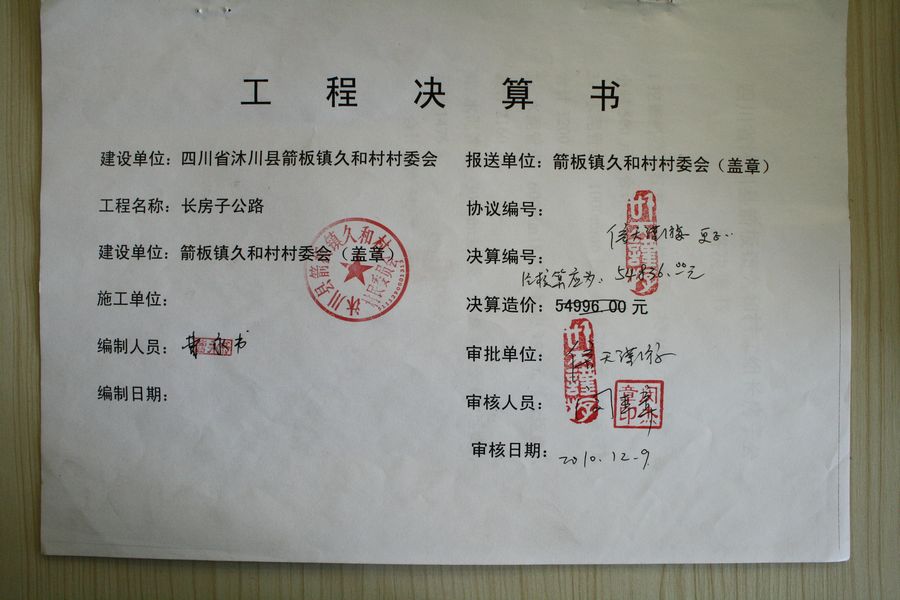 工程决算书
建设单位：四川省沐川县箭板镇久和村村委会
报送单位：箭板镇久和村村委会（盖章）
工程名称：长房子公路
协议编号：
建设单位：箭板镇久和村村委会（盖章）
决算编号：
54836.00元
施工单位：
决算造价：54996.00元
编制人员：
审批单位：
编制日期：
审核人员：
审核日期：2010.12.9
沐川县箭板镇久和村
村民委员会